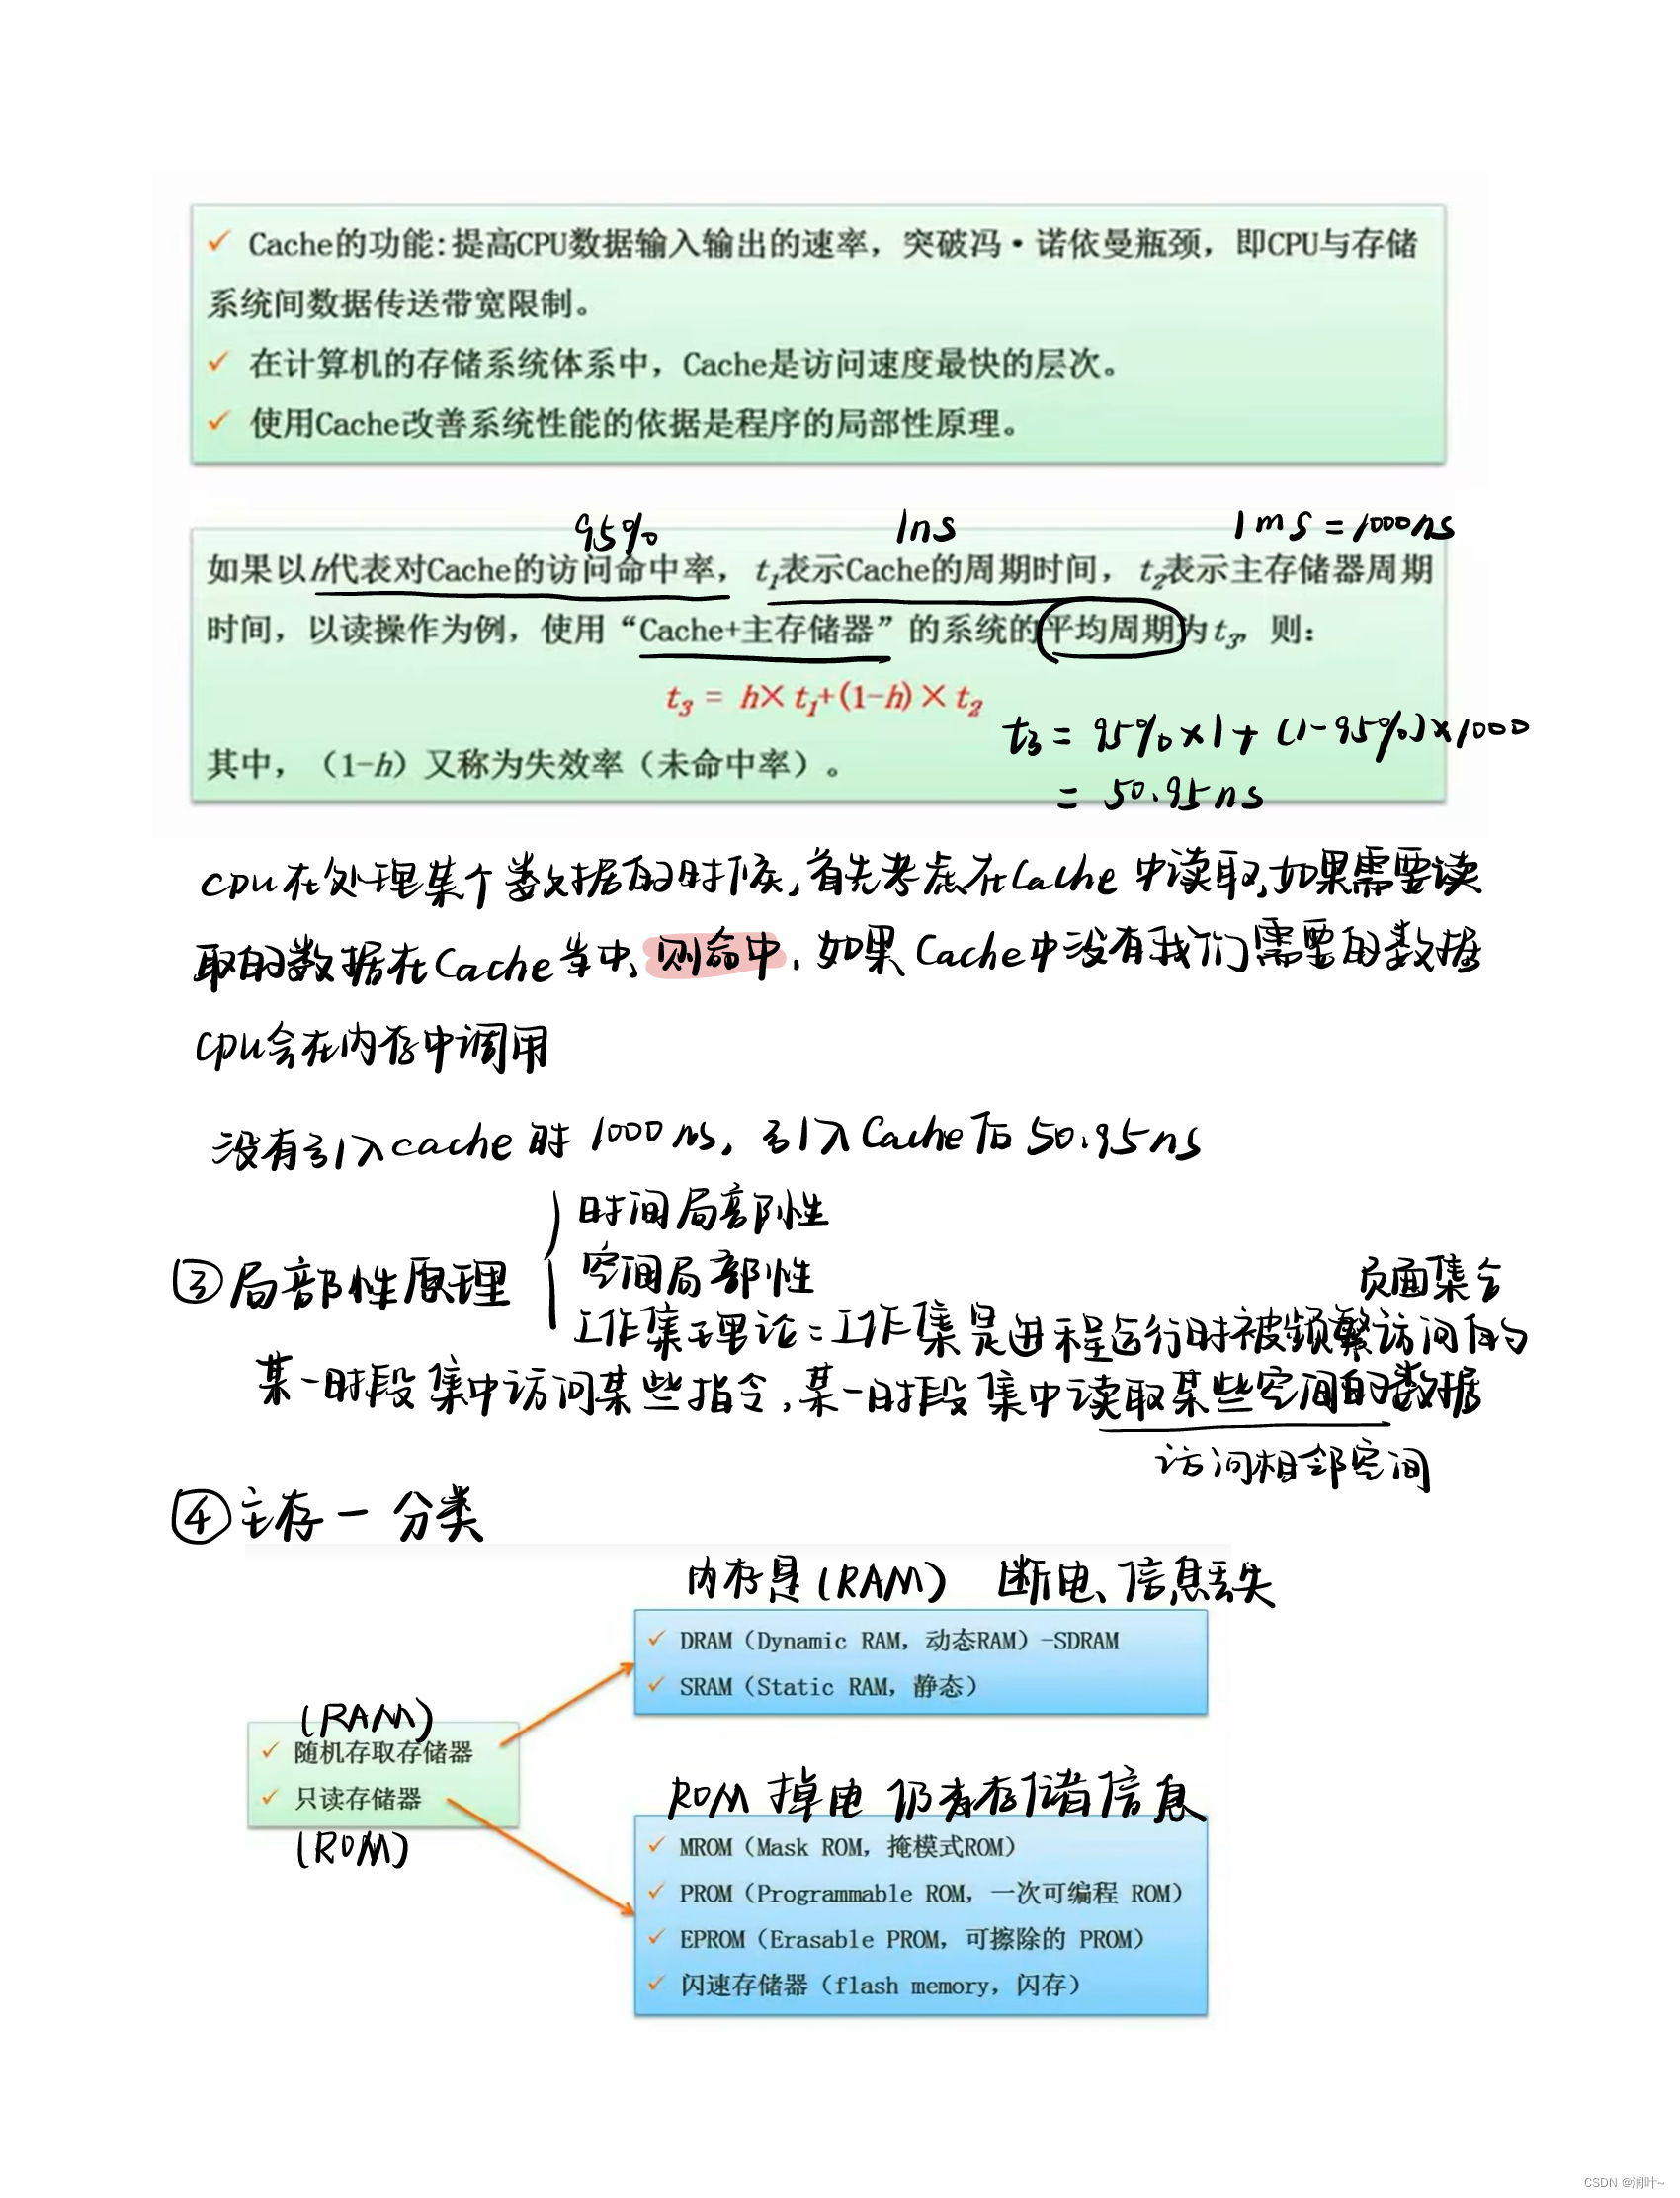 ✓ Cache的功能:提高CPU数据输入输出的速率，突破冯·诺依曼瓶颈，即CPU与存储
系统间数据传送带宽限制。
✓ 在计算机的存储系统体系中，Cache是访问速度最快的层次。
✓ 使用Cache改善系统性能的依据是程序的局部性原理。
95% 1ns 1ms=1000ns
如果以h代表对Cache的访问命中率，t1表示Cache的周期时间，t2表示主存储器周期
时间，以读操作为例，使用“Cache+主存储器”的系统的平均周期为t3，则：
t3 = h× t1+(1-h)× t2
t3 = 95%×1+(1-95%)×1000
其中，（1-h）又称为失效率（未命中率）。
= 50.95ns
cpu在处理某个数据的时候,首先考虑在Cache中读取,如果需要读
取的数据在Cache当中,则命中,如果Cache中没有我们需要的数据
cpu会在内存中调用
没有引入cache时1000ns,引入Cache后50.95ns
时间局部性
③局部性原理 空间局部性
页面集合
工作集理论:工作集是进程运行时被频繁访问的
某一时段集中访问某些指令,某一时段集中读取某些空间的数据
访问相邻空间
④主存-分类
内存是(RAM) 断电、信息丢失
✓ DRAM（Dynamic RAM，动态RAM）-SDRAM
✓ SRAM（Static RAM，静态）
(RAM)
✓ 随机存取存储器
✓ 只读存储器
(ROM)
ROM 掉电 仍有存储信息
✓ MROM（Mask ROM，掩模式ROM）
✓ PROM（Programmable ROM，一次可编程 ROM）
✓ EPROM（Erasable PROM，可擦除的 PROM）
✓ 闪速存储器（flash memory，闪存）
CSDN @润叶~